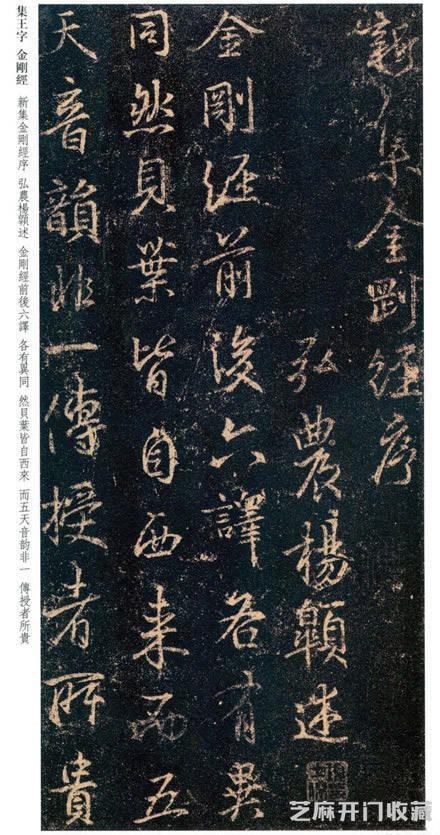 新集金剛經序
弘農楊顗述
金剛經前後六譯各有異
同然貝葉皆自西來而五
天音韻非一傳授者所貴
集王字 金剛經 新集金剛經序 弘農楊顗述 金剛經前後六譯 各有異同 然貝葉皆自西來 而五天音韵非一 傳授者所貴
芝麻开门收藏